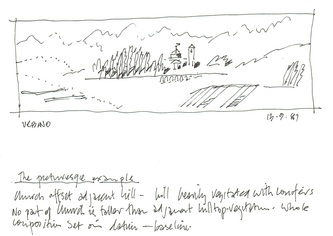 VEDANO
13-9-87
The picturesque example
Church offset adjacent hill - hill heavily vegetated with conifers
No part of church is taller than adjacent hilltop vegetation. Whole
composition set on datum - baseline.